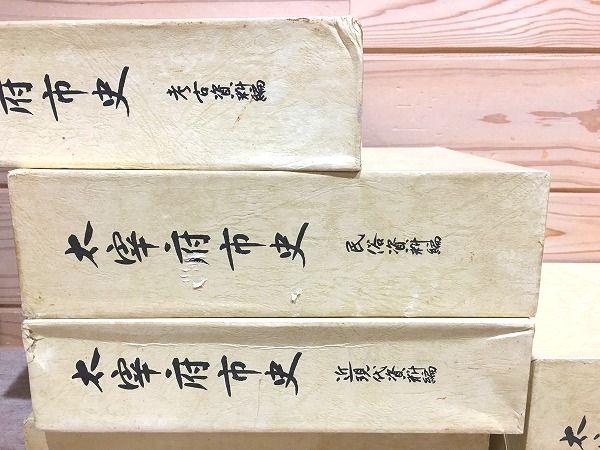 府市史 考古資料編
太宰府市史 民俗資料編
太宰府市史 近現代資料編
太